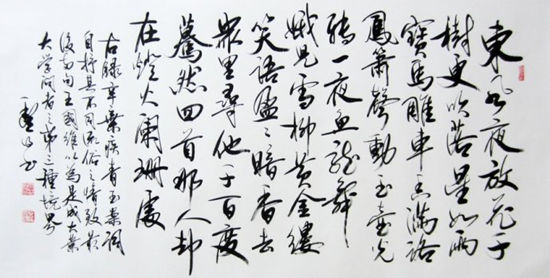 東風夜放花千
樹更吹落星如雨
寶馬雕車香滿路
鳳簫聲動玉壺光
轉一夜魚龍舞
蛾兒雪柳黃金縷
笑語盈〻暗香去
衆里尋他千百度
驀然回首那人却
在燈火闌珊處
右錄辛棄疾青玉案詞
自抒其不同流俗之情致最
後兩句王國維以為是成大業
大学问者之第三種境界